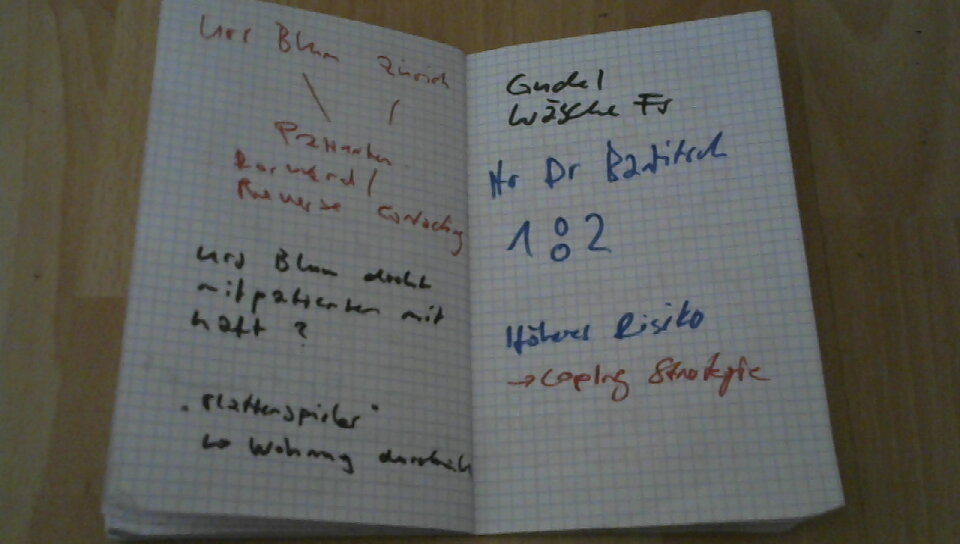 Urs Blum Zürich
Patienten
Forward /
Reverse
Urs Blum droht
mitpatienten mit
haft ?
"Plattenspieler"
Wohnung
Gudel
Wäsche Fr
Hr Dr
1:2
Höheres Risiko
→ Coping Strategie